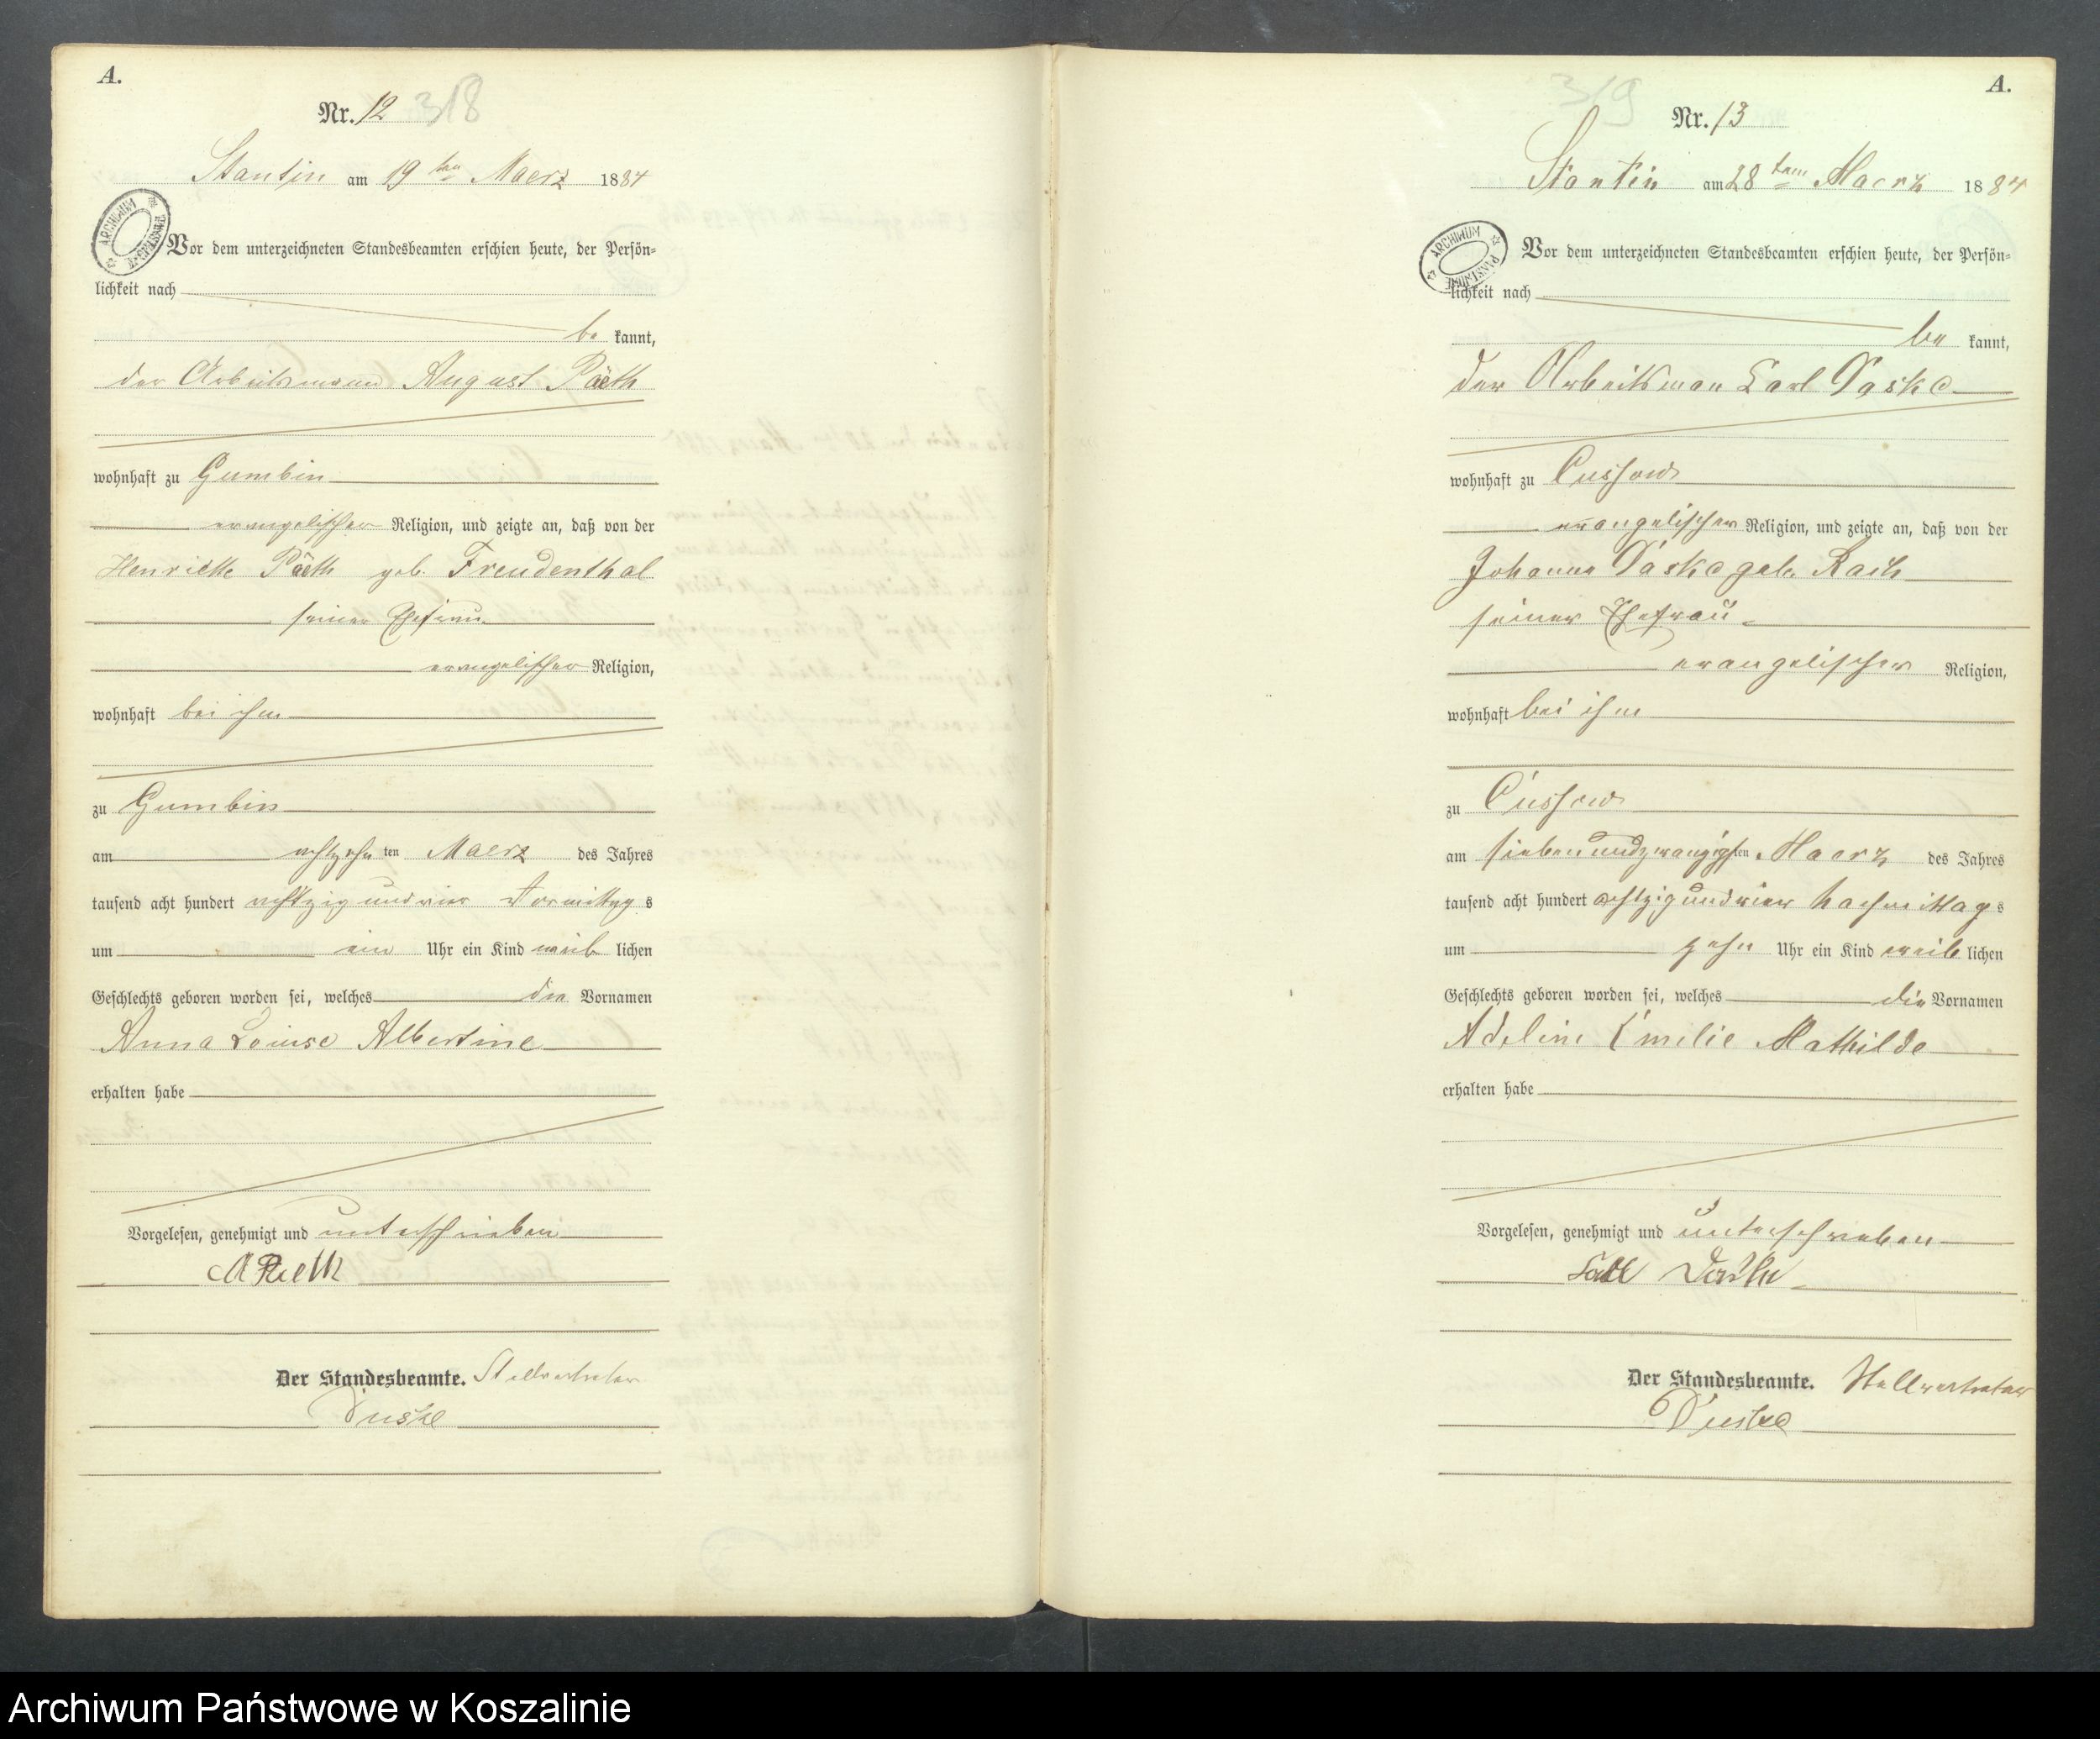 A.
Nr. 12 318
Stantin am 19 ten Maerz 1884
ARCHIWUM
Vor dem unterzeichneten Standesbeamten erschien heute, der Persön-
lichkeit nach
be kannt,
der Arbeitsmann August Päeth
wohnhaft zu Gumbin
evangelischer Religion, und zeigte an, daß von der
Henriette Päeth geb. Freudenthal
seiner Ehefrau
evangelischer Religion,
wohnhaft bei ihm
zu Gumbin
am achtzehn ten Maerz des Jahres
tausend acht hundert achtzig und vier Vormittag s
um ein Uhr ein Kind weib lichen
Geschlechts geboren worden sei, welches die Vornamen
Anna Louise Albertine
erhalten habe
Vorgelesen, genehmigt und unterschrieben
A Paeth
Der Standesbeamte. Stellvertreter
A.
319
Nr. 13
Stantin am 28 ten Maerz 1884
ARCHIWUM PAŃSTWOWE
Vor dem unterzeichneten Standesbeamten erschien heute, der Persön-
lichkeit nach
be kannt,
der Arbeitsman Carl Daske
wohnhaft zu Cussow
evangelischer Religion, und zeigte an, daß von der
Johanne Daske geb.
seiner Ehefrau
evangelischer Religion,
wohnhaft bei ihm
zu Cussow
am siebenundzwanzigsten Maerz des Jahres
tausend acht hundert achtzig und vier Nachmittag s
um zehn Uhr ein Kind weib lichen
Geschlechts geboren worden sei, welches die Vornamen
Adeline Emilie Mathilde
erhalten habe
Vorgelesen, genehmigt und unterschrieben
Carl Daske
Der Standesbeamte. Stellvertreter
Archiwum Państwowe w Koszalinie